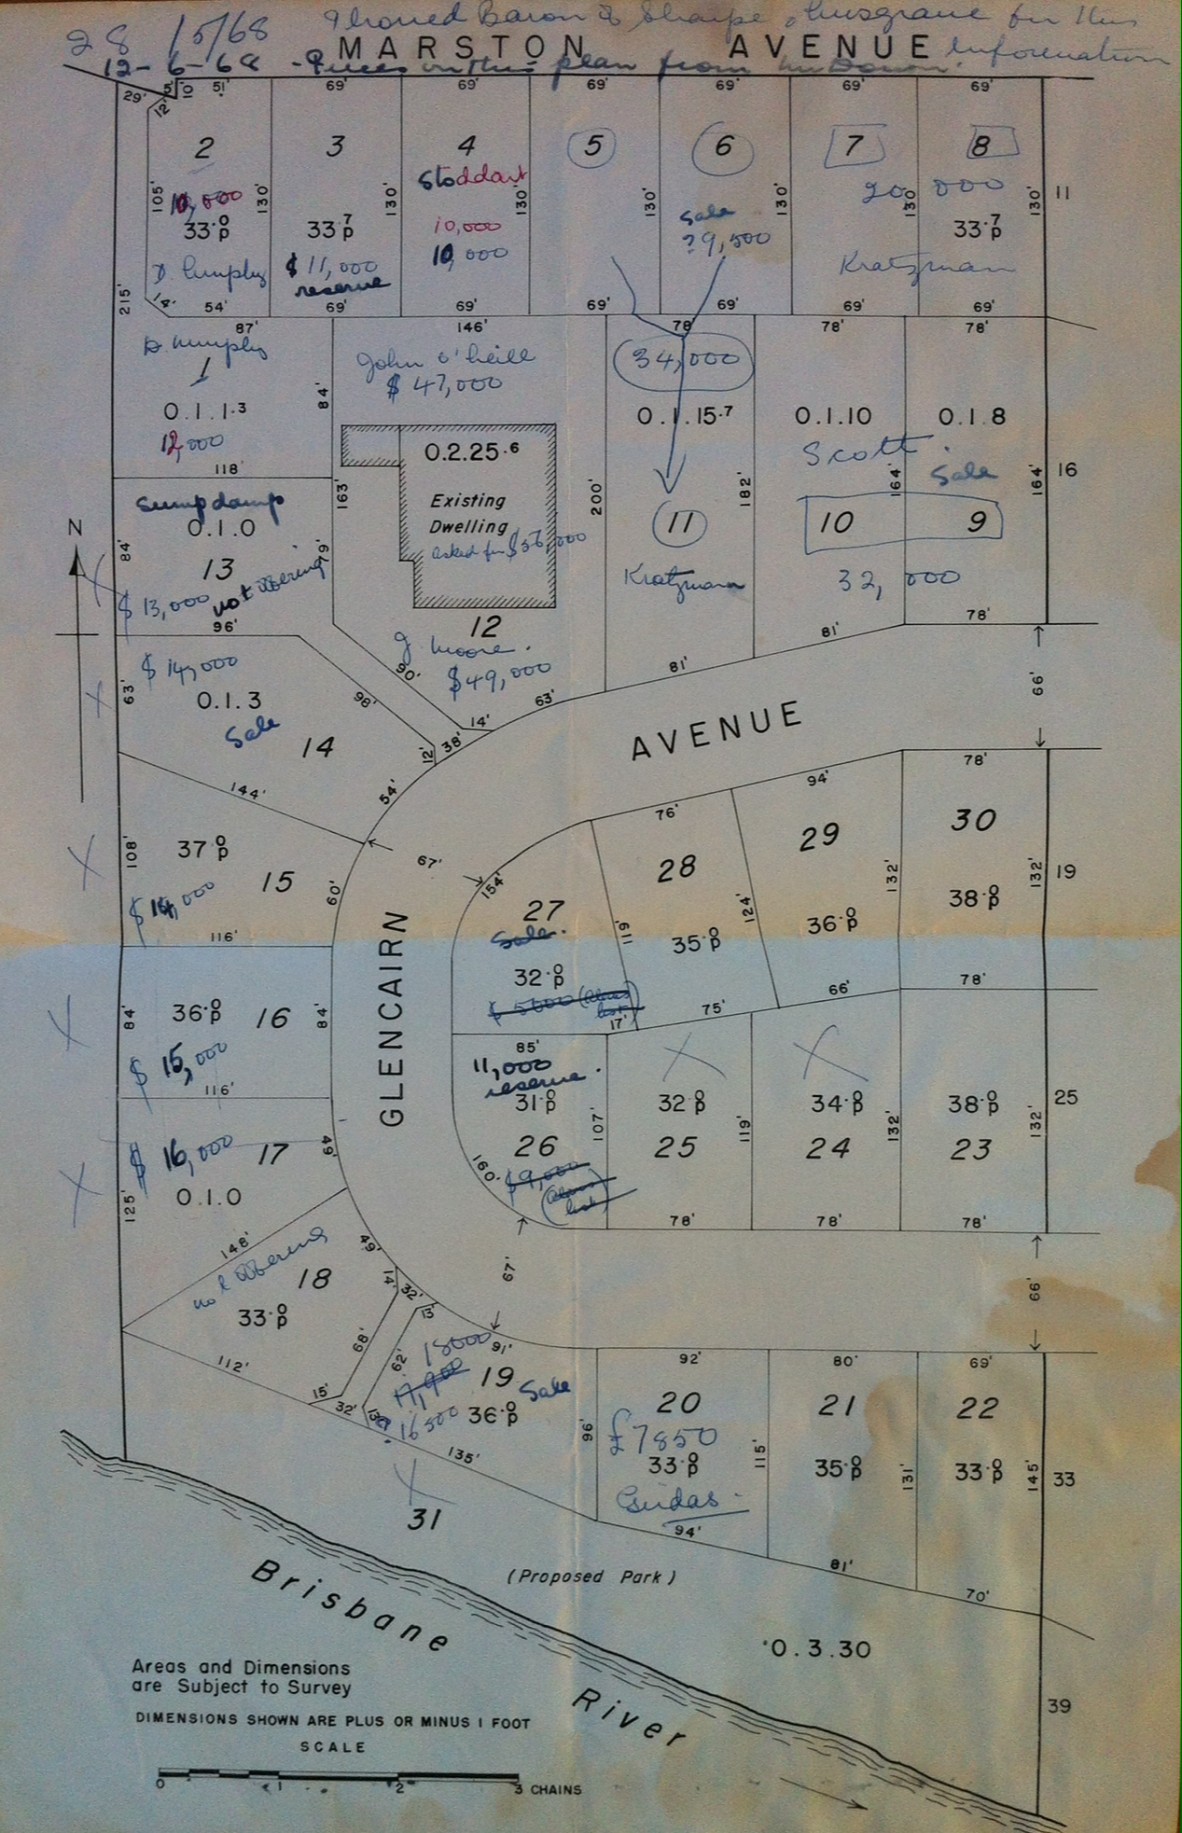 28/5/68 Phoned Baron & Sharpe, Musgrave for this
MARSTON AVENUE information
12-6-68 - Prices on this plan from
29' 5' 10' 51' 69' 69' 69' 69' 69' 69'
12'
2 3 4 5 6 7 8
Stoddart
105' 10,000 130' 130' 10,000 130' 130' Sale 130' 20,000 130' 130' 11
33·0p 33·7p 10,000 ? 9,500 33·7p
D. $11,000 Kratzman
reserve
215' 14' 54' 69' 69' 69' 69' 69' 69'
87' 146' 78' 78' 78'
John O'Neill 34,000
84' $47,000
0.1.1·3 0.1.15·7 0.1.10 0.1.8
12,000 0.2.25·6 Scott Sale
118' 163' 200' 182' 164' 164' 16
Sump dump Existing
0.1.0 Dwelling 11 10 9
N 84' 13 79' asked for
$13,000 not offering Kratzmann 32,000
96' 12 81' 78'
J. Moore.
$14,000 90' $49,000 81' 66'
63' 0.1.3 98' 63'
Sale 14 14'
12' 38' AVENUE
144' 54' 76' 94' 78'
108' 37·0p 15 67' 28 29 30
$14,000 60' 154' 132' 132' 19
27 119' 124' 38·0p
116' Sale. 35·0p 36·0p
32·0p
84' 36·0p 16 84' $5600 75' 66' 78'
$15,000 17'
116' GLENCAIRN 85'
11,000
reserve.
31·0p 32·0p 34·0p 38·0p 25
$16,000 17 49' 107' 119' 132' 132'
125' 0.1.0 26 25 24 23
160' $9,000
148' 78' 78' 78'
not offering 18 49' 67' 66'
33·0p 14' 32' 13'
112' 68' 62' 18000 91' 92' 80' 69'
17,900 19 Sale 20 21 22
15' 32' 13' 16500 36·0p 96' £7850 115' 131' 145' 33
135' 33·0p 35·0p 33·0p
31 94' 81' 70'
(Proposed Park)
Brisbane River
0.3.30
Areas and Dimensions
are Subject to Survey
DIMENSIONS SHOWN ARE PLUS OR MINUS 1 FOOT 39
SCALE
0 1 2 3 CHAINS